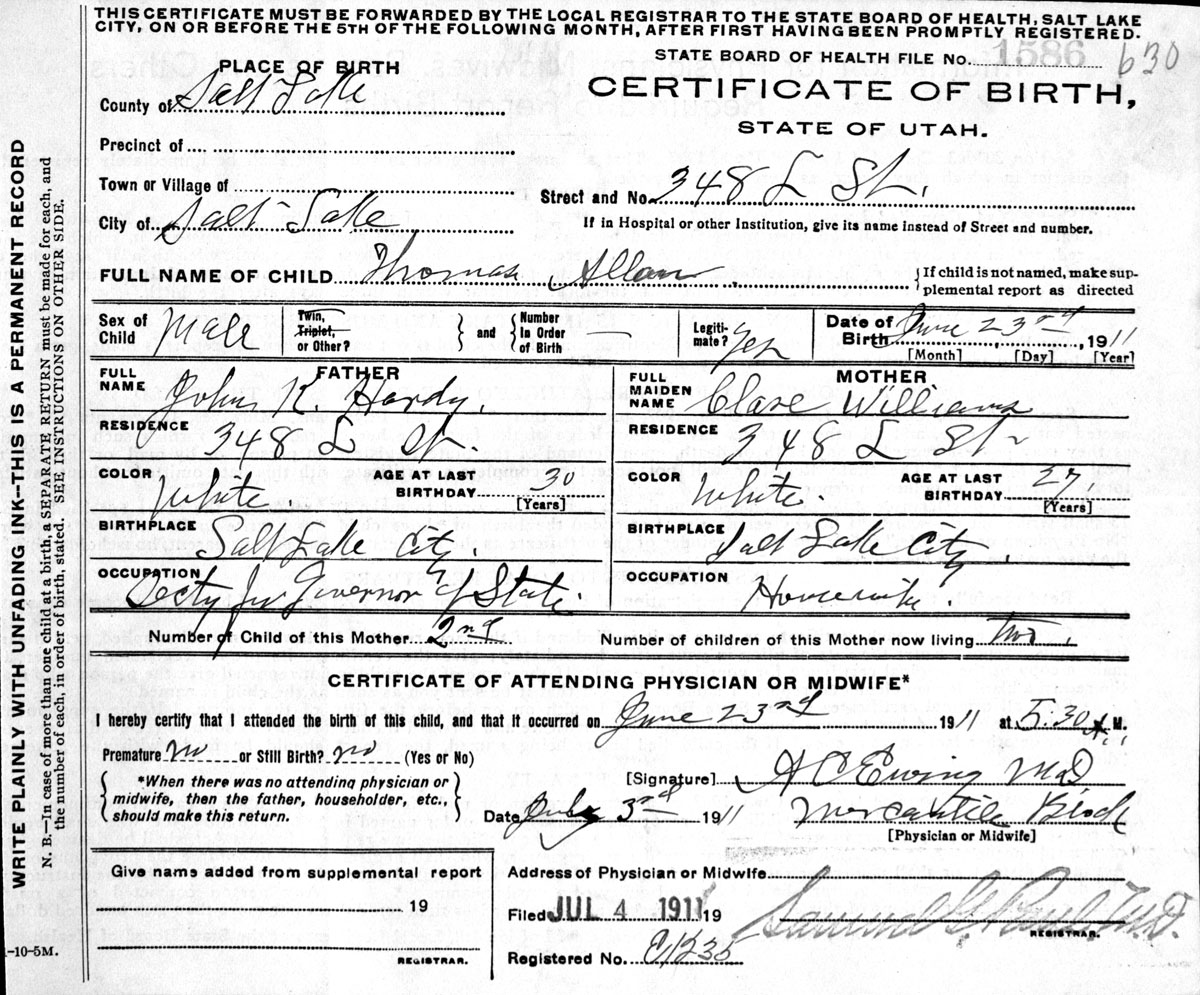 THIS CERTIFICATE MUST BE FORWARDED BY THE LOCAL REGISTRAR TO THE STATE BOARD OF HEALTH, SALT LAKE
CITY, ON OR BEFORE THE 5TH OF THE FOLLOWING MONTH, AFTER FIRST HAVING BEEN PROMPTLY REGISTERED.
STATE BOARD OF HEALTH FILE No. 1586 630
PLACE OF BIRTH
CERTIFICATE OF BIRTH,
County of Salt Lake
STATE OF UTAH.
Precinct of
Town or Village of
Street and No. 348 L St.
City of Salt Lake
If in Hospital or other Institution, give its name instead of Street and number.
FULL NAME OF CHILD Thomas Allan
If child is not named, make sup-
plemental report as directed
Sex of Child Male
Twin, Triplet, or Other?
and
Number In Order of Birth
Legiti-mate? Yes
Date of Birth June 23rd, 1911
[Month] [Day] [Year]
FATHER
FULL NAME John K. Hardy.
RESIDENCE 348 L St.
COLOR White.
AGE AT LAST BIRTHDAY 30
[Years]
BIRTHPLACE Salt Lake City.
OCCUPATION Secty for Governor of State.
MOTHER
FULL MAIDEN NAME Clare Williams
RESIDENCE 348 L St
COLOR White.
AGE AT LAST BIRTHDAY 27.
[Years]
BIRTHPLACE Salt Lake City
OCCUPATION Housewife.
Number of Child of this Mother 2nd
Number of children of this Mother now living Two.
CERTIFICATE OF ATTENDING PHYSICIAN OR MIDWIFE*
I hereby certify that I attended the birth of this child, and that it occurred on June 23rd 1911 at 5:30 A. M.
Premature no or Still Birth? no (Yes or No)
*When there was no attending physician or
midwife, then the father, householder, etc.,
should make this return.
[Signature] A C Ewing MD
Date July 3rd 1911 Mercantile Block
[Physician or Midwife]
Give name added from supplemental report
19
REGISTRAR.
Address of Physician or Midwife
Filed JUL 4 1911 19
Samuel G. Paul M.D.
REGISTRAR.
Registered No. C1235
-10-5M.
WRITE PLAINLY WITH UNFADING INK—THIS IS A PERMANENT RECORD
N. B.—In case of more than one child at a birth, a SEPARATE RETURN must be made for each, and
the number of each, in order of birth, stated. SEE INSTRUCTIONS ON OTHER SIDE.